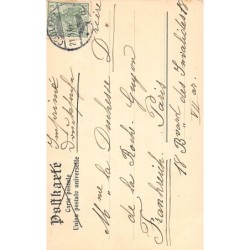 Postkarte
Carte postale
Union postale universelle
Imprimé
Drucksache
Mme la Duchesse Disre
de la Roche-Guyon
Paris
Frankreich
18 Bvard des Invalides 18
VII ar.